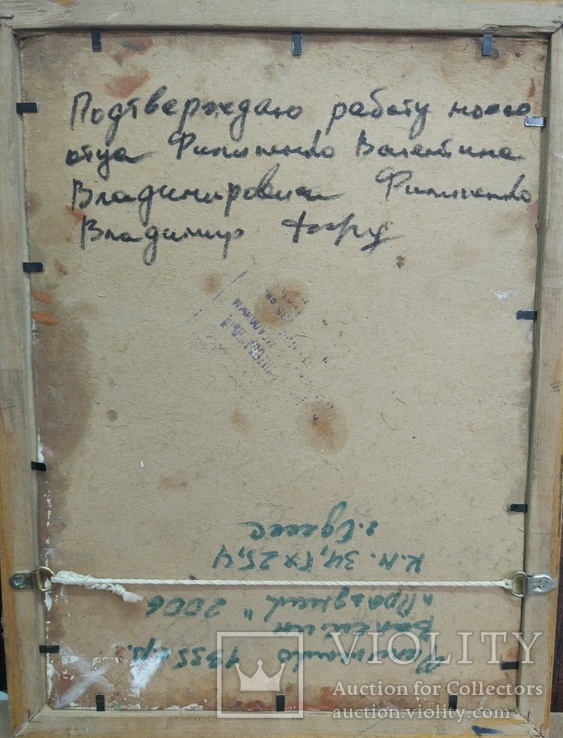 Подтверждаю работу моего
отца Филипенко Валентина
Владимировича Филипенко
Владимир
Филипенко 1935 г.р.
Валентин
"Праздник" 2006
к.м. 34,5х25,4
г. Одесса
VIOLITY
Auction for Collectors
auction.violity.com